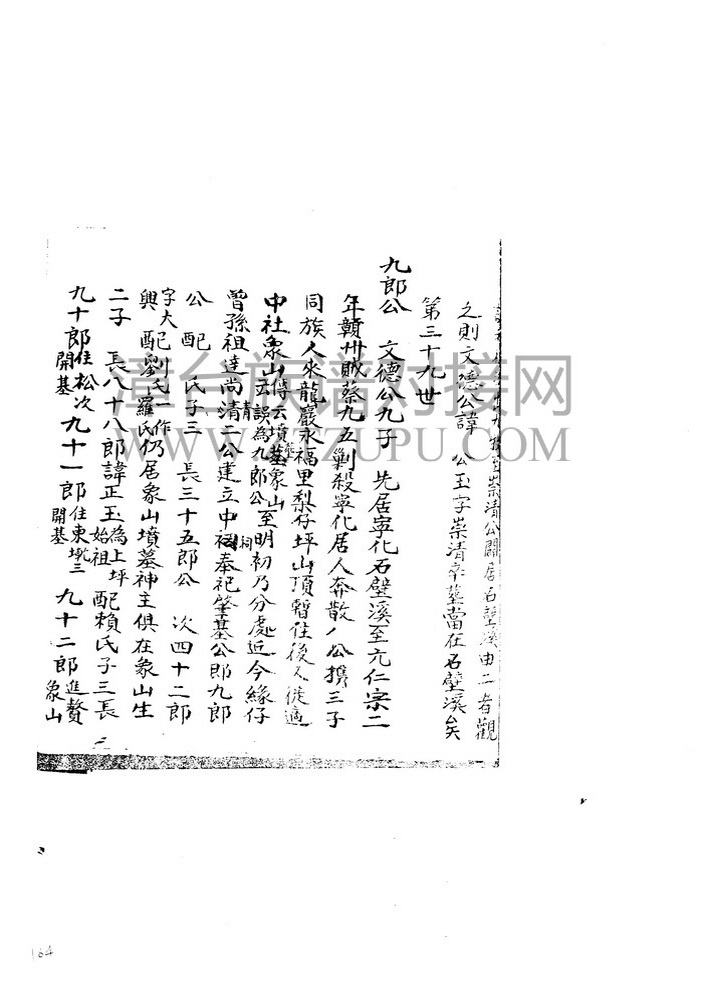 崇清公開居石壁溪由二者觀
之則文德公諱 公玉字崇清卒塟當在石壁溪矣
第三十九世
九郎公 文德公九子 先居寧化石壁溪至元仁宗二
年贛卅賊蔡九五剿殺寧化居人奔散公攜三子
同族人來龍巖永福里梨仔坪山頂暫住後又徙適
中社象山傳云墳墓象山誤為九郎公至明初乃分處近今緣仔
曾孫祖達尚清二公建立中祠奉祀肇基公郎九郎
公 配 氏子三 長三十五郎公 次四十二郎
字大興 配劉氏一作羅氏仍居象山墳墓神主俱在象山生
二子 長八十八郎諱正玉為上坪始祖 配賴氏子三長
九十郎住松開基次九十一郎住東坑開基三九十二郎進贅象山
漳台族谱对接网
WWW.ZTZUPU.COM
164